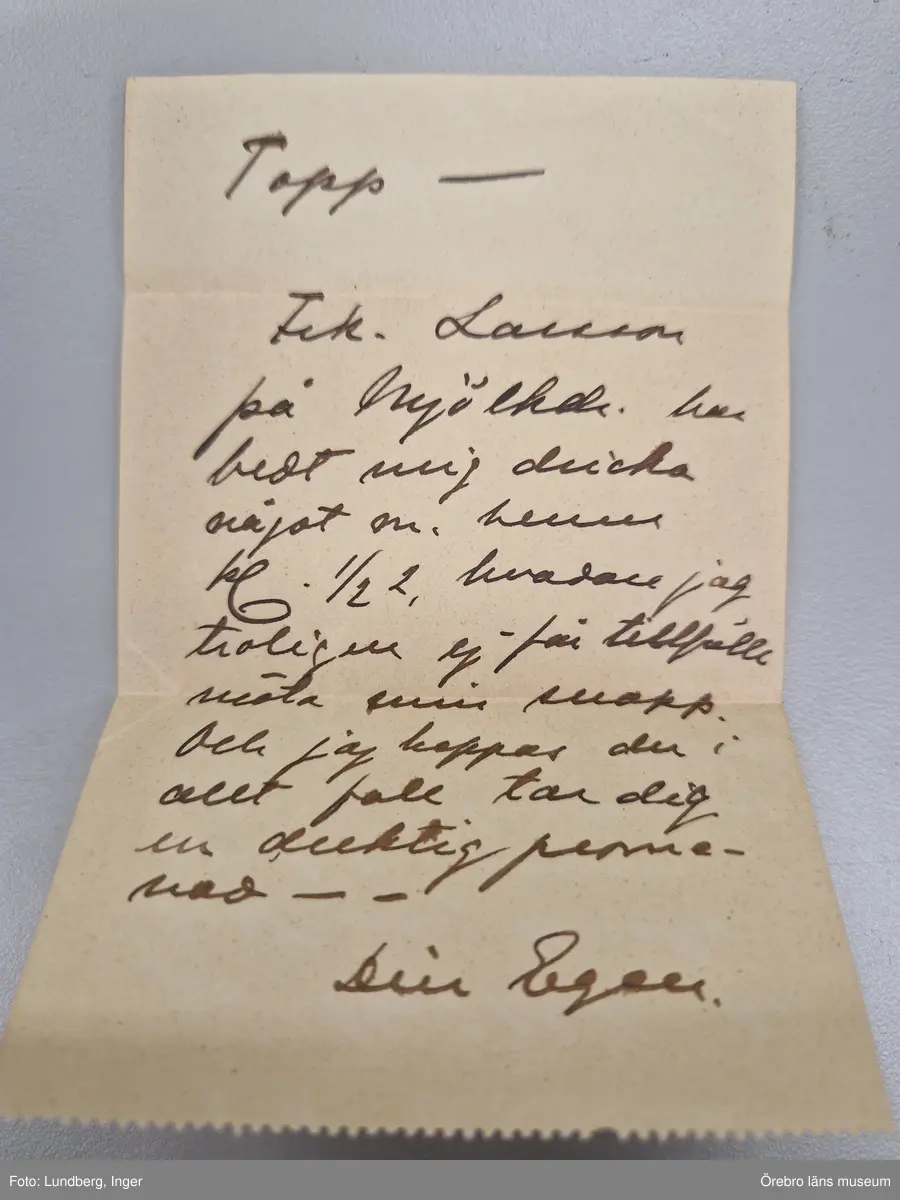 Topp —
Frk. Larsson
på Mjölkds. har
bedt mig dricka
något m. henne
kl. 1/2 2, hvadan jag
troligen ej får tillfälle
möta min snopp.
Och jag hoppas du i
allt fall tar dig
en duktig prome-
nad — —
Din Egen.
Foto: Lundberg, Inger
Örebro läns museum